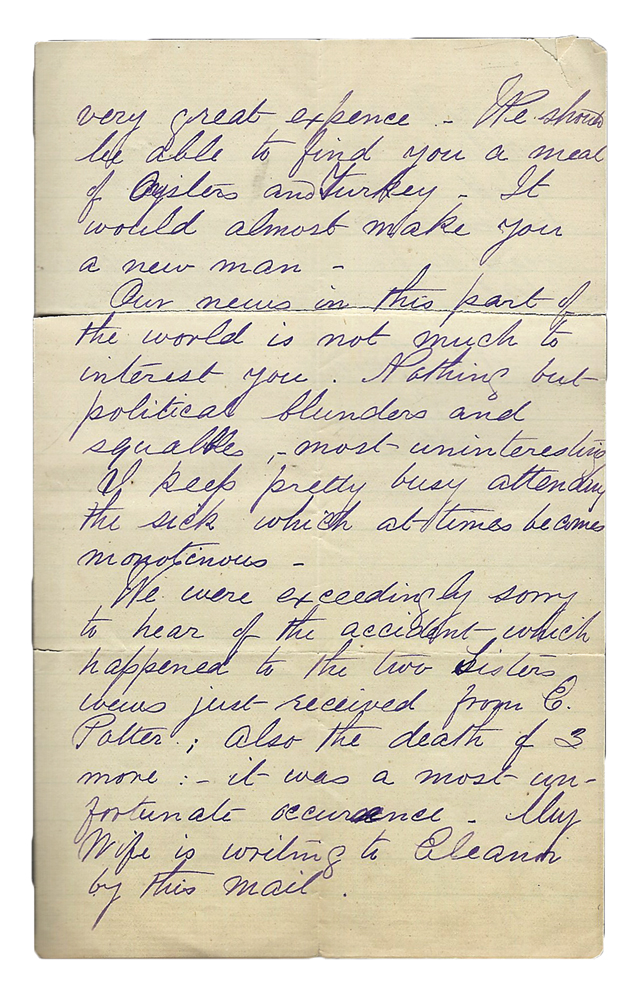 very great expence - We should
be able to find you a meal
of Oysters and Turkey - It
would almost make you
a new man -
Our news in this part of
the world is not much to
interest you. Nothing but
political blunders and
squabbles, - most uninteresting
I keep pretty busy attending
the sick which at times becomes
monotinous -
We were exceedingly sorry
to hear of the accident which
happened to the two Sisters
news just received from E.
Potter; also the death of 3
more :- it was a most un-
fortunate occurence - My
Wife is writing to Eleanor
by this mail.